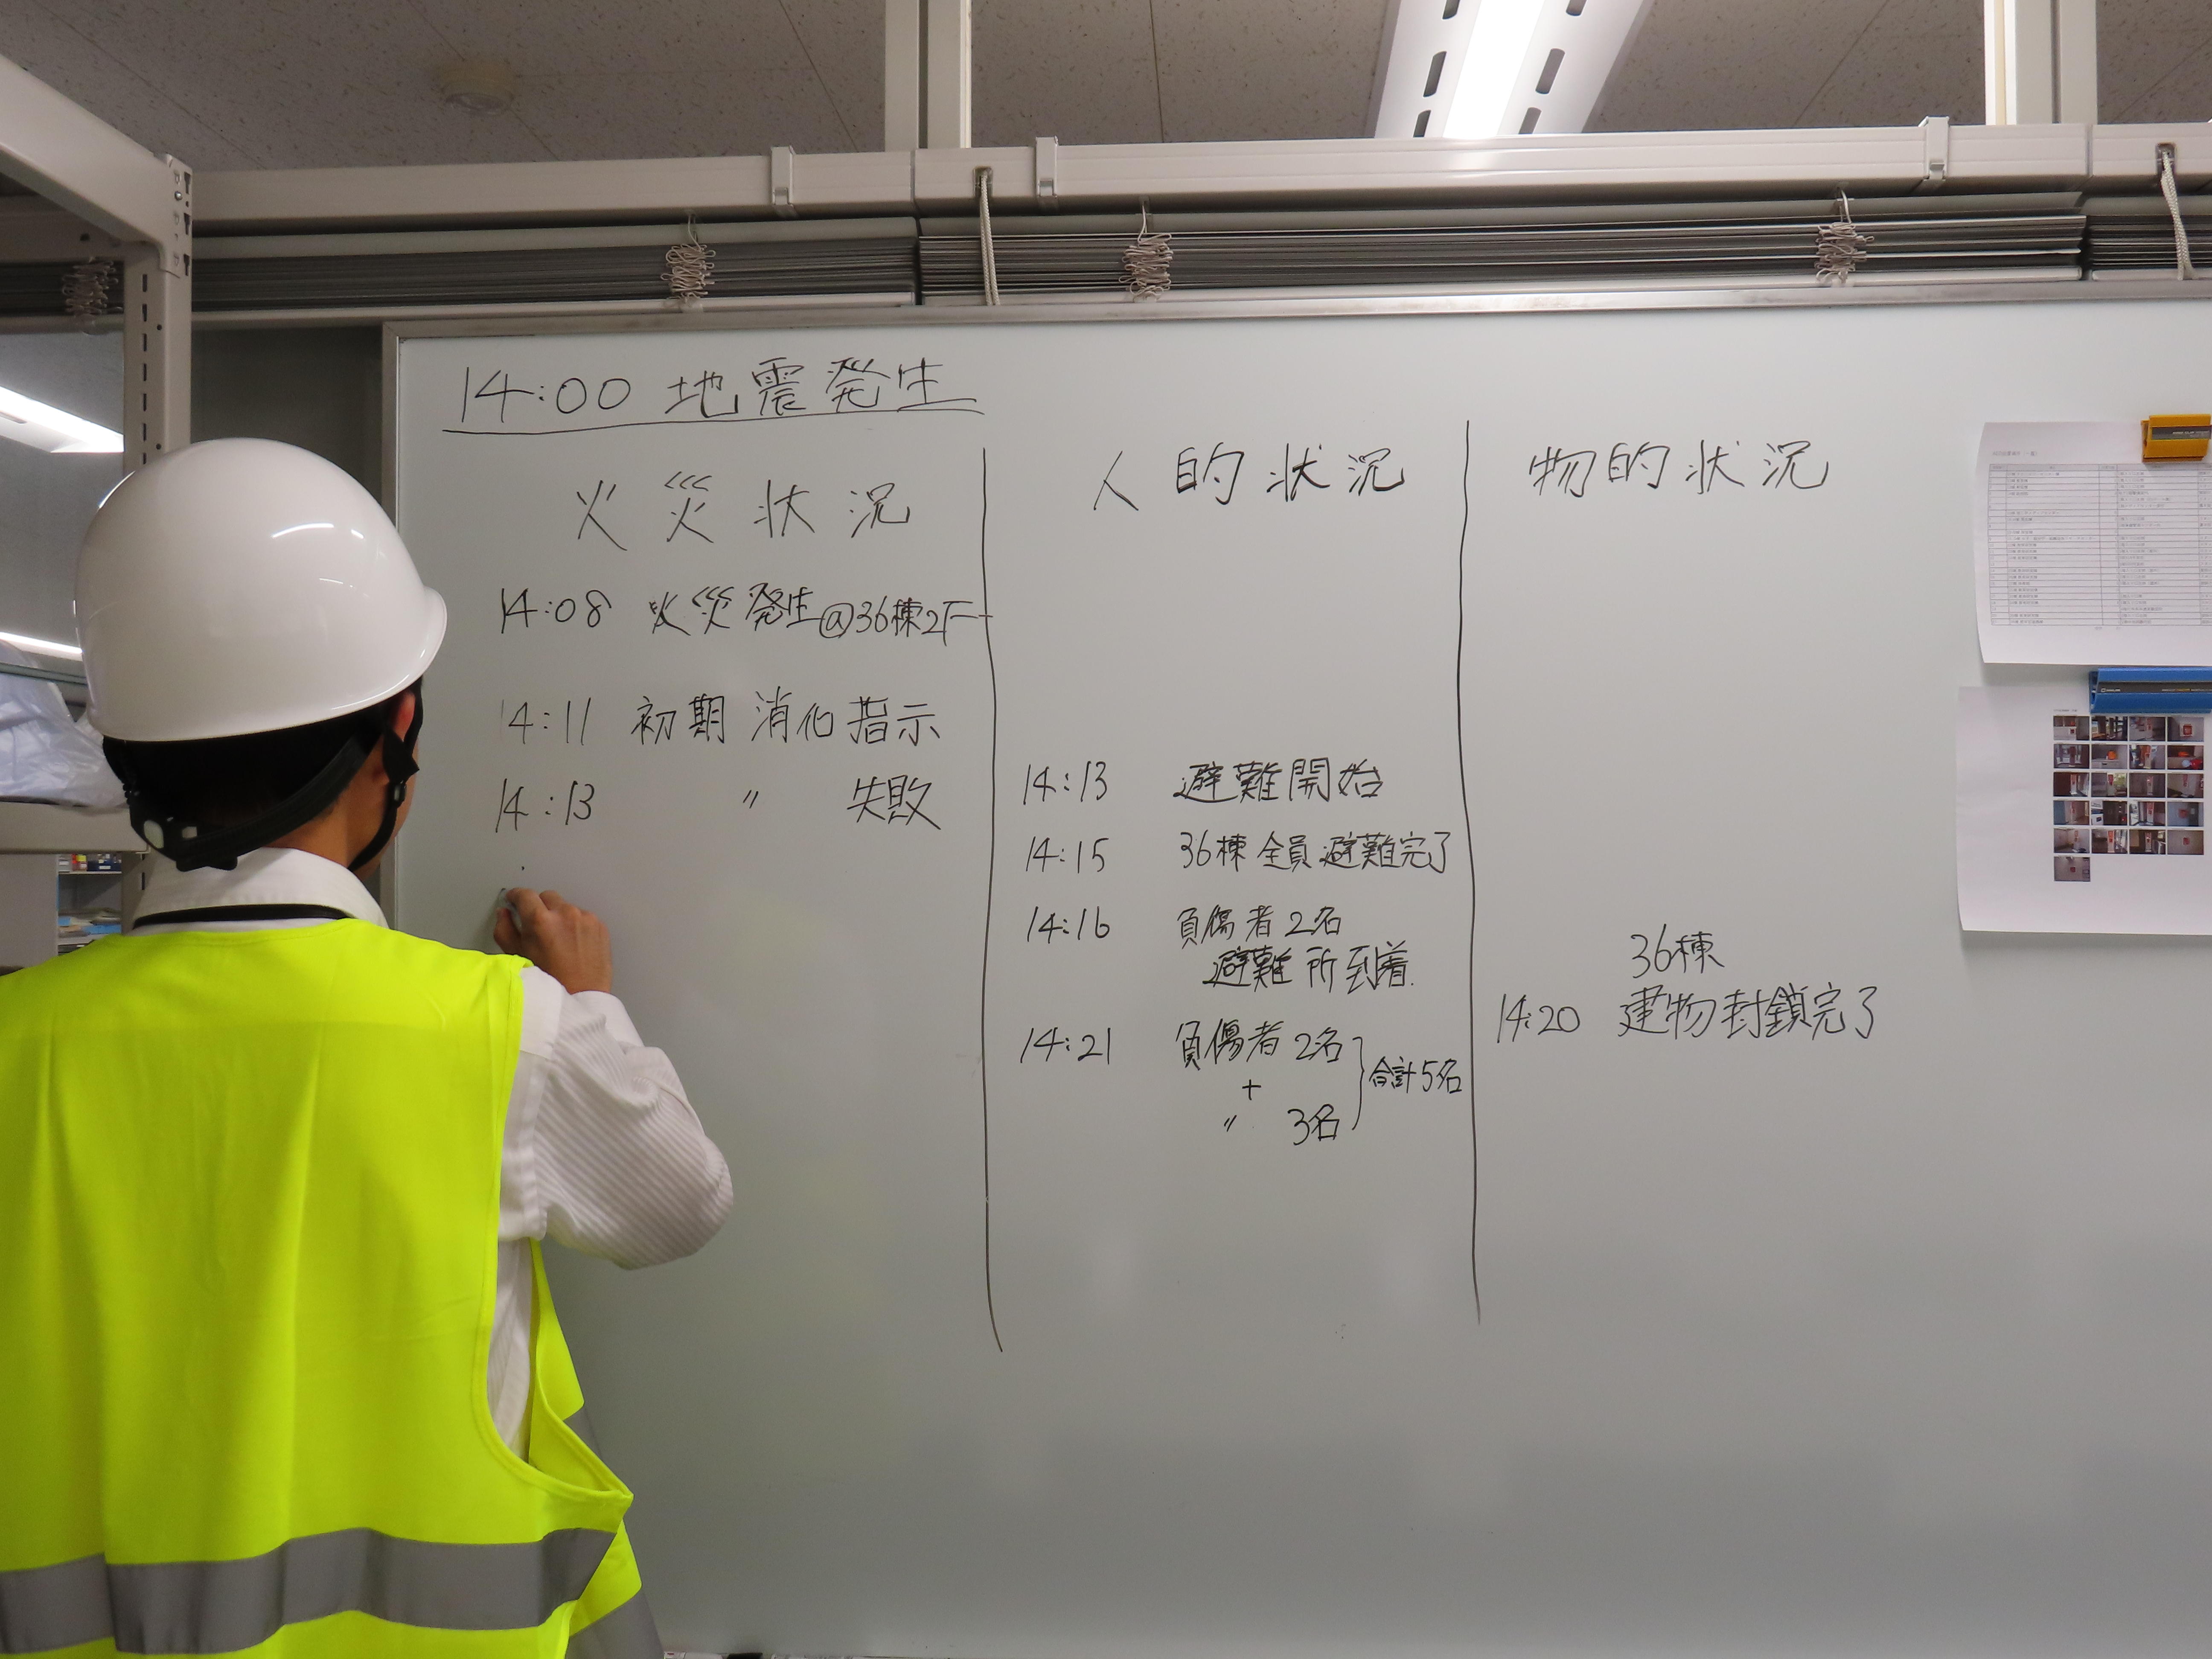 14:00 地震発生
火災状況
14:08 火災発生@36棟2F
14:11 初期消化指示
14:13 〃 失敗
人的状況
14:13 避難開始
14:15 36棟全員避難完了
14:16 負傷者2名
避難所到着.
14:21 負傷者2名
+
〃 3名
合計5名
物的状況
36棟
14:20 建物封鎖完了